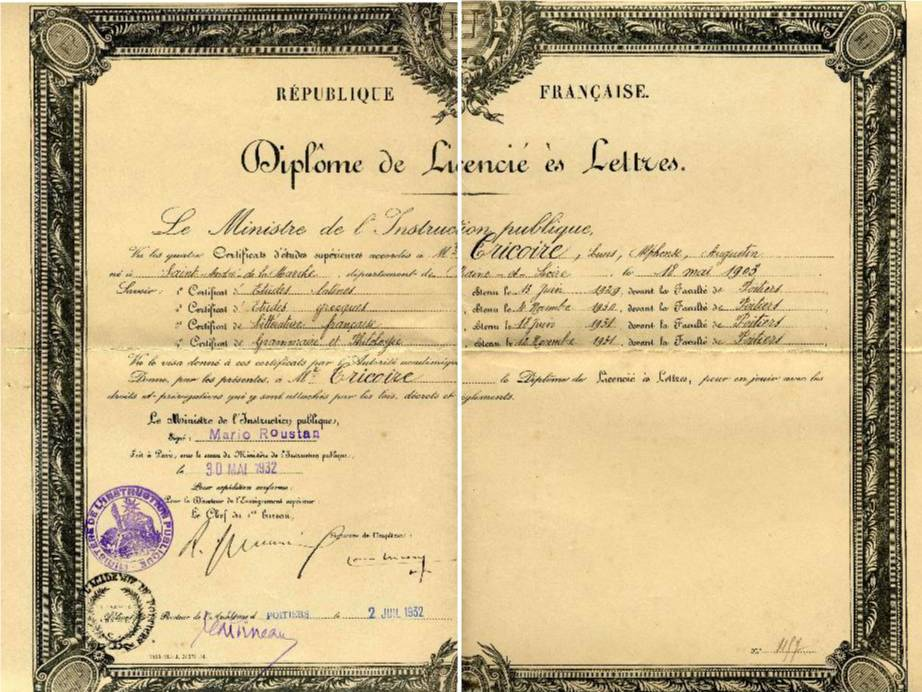 RÉPUBLIQUE FRANÇAISE.
Diplôme de Licencié ès Lettres.
Le Ministre de l'Instruction publique,
Vu les quatre Certificats d'études supérieures accordés à Mr Tricoire, Alphonse, Augustin
né à Saint-André-de-la-Marche, département de Maine-et-Loire, le 18 mai 1903
Savoir: 1° Certificat d'Etudes latines obtenu le 13 Juin 1929, devant la Faculté de Poitiers
2° Certificat d'Etudes grecques obtenu le Novembre 1930, devant la Faculté de Poitiers
3° Certificat de Littérature française obtenu le Juin 1931, devant la Faculté de Poitiers
4° Certificat de Grammaire et Philologie obtenu le Novembre 1931, devant la Faculté de Poitiers
Vu le visa donné à ces certificats par l'Autorité académique
Donne, par les présentes, à Mr Tricoire le Diplôme de Licencié ès Lettres, pour en jouir avec les
droits et prérogatives qui y sont attachés par les lois, décrets et règlements.
Le Ministre de l'Instruction publique,
Signé: Mario Roustan
Fait à Paris, sous le sceau du Ministère de l'Instruction publique,
le 30 MAI 1932
Pour expédition conforme:
Pour le Directeur de l'Enseignement supérieur:
Le Chef du 1er bureau,
Signature de l'Impétrant:
MINISTÈRE DE L'INSTRUCTION PUBLIQUE
ACADÉMIE DE
Recteur de l'Académie d POITIERS le 2 JUIL 1932